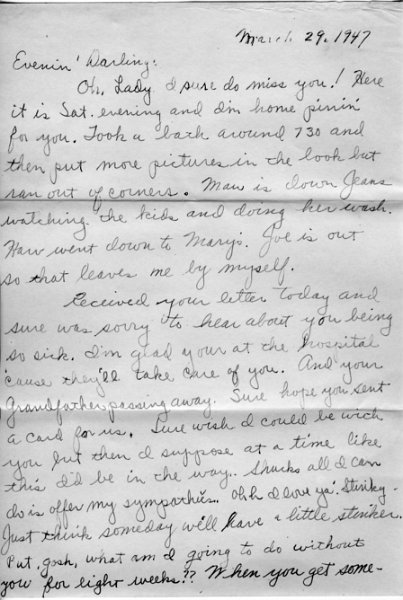 March 29, 1947
Evenin' Darling:
Oh, Lady I sure do miss you! Here
it is Sat. evening and I'm home pinin'
for you. Took a bath around 730 and
then put more pictures in the book but
ran out of corners. Maw is down Jeans
watching the kids and doing her wash.
Haw went down to Mary's. Joe is out
so that leaves me by myself.
Received your letter today and
sure was sorry to hear about you being
so sick. I'm glad your at the hospital
'cause they'll take care of you. And your
Grandfather passing away. Sure hope you sent
a card for us. Sure wish I could be with
you but then I suppose at a time like
this I'd be in the way. Shucks all I can
do is offer my sympathies. Ohh I love ya' Stinky.
Just think someday we'll have a little stinker.
But, gosh, what am I going to do without
you for eight weeks?? When you get some-